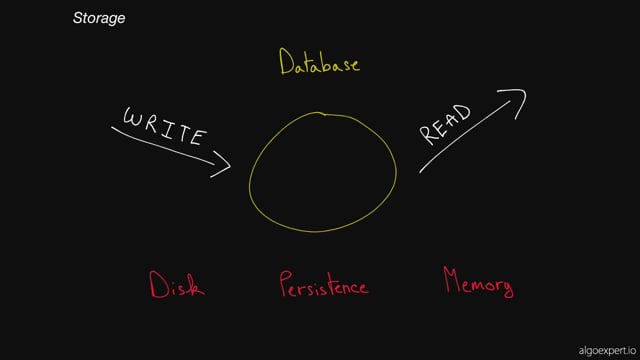 Storage
Database
WRITE
READ
Disk Persistence Memory
algoexpert.io